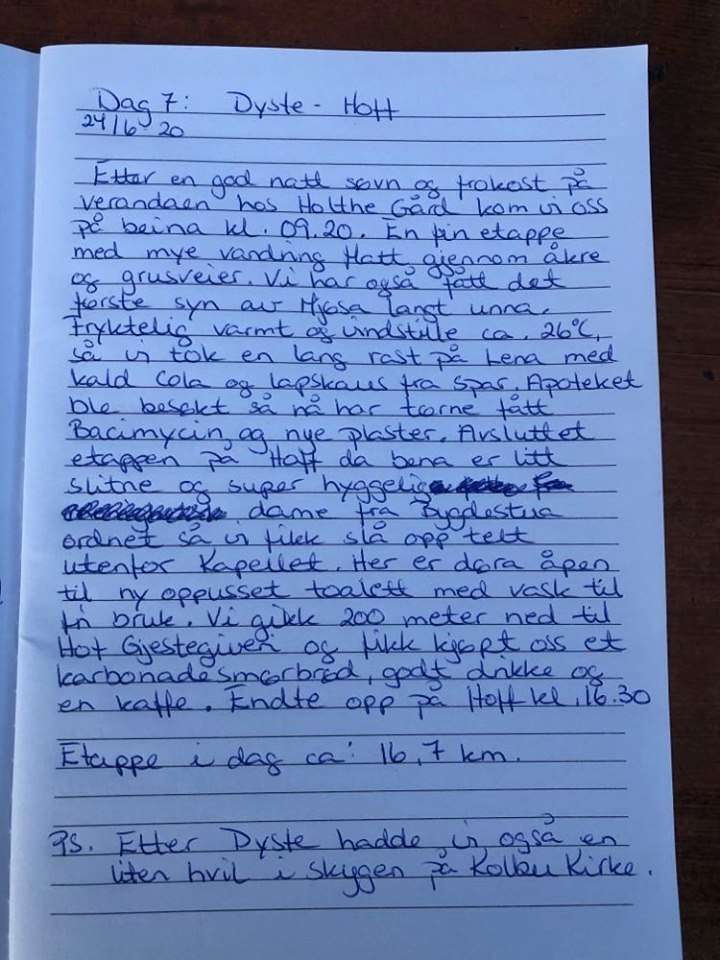 Dag 7: Dyste - Hoff
24/6 20
Etter en god natt søvn og frokost på
verandaen hos Holthe Gård kom vi oss
på beina kl. 09.20. En fin etappe
med mye vandring flatt gjennom åkre
og grusveier. Vi har også fått det
første syn av Mjøsa langt unna.
Fryktelig varmt og vindstille ca. 26°C,
så vi tok en lang rast på Lena med
kald Cola og lapskaus fra Spar. Apoteket
ble besøkt så nå har tærne fått
Bacimycin og nye plaster. Avsluttet
etappen på Hoff da bena er litt
slitne og super hyggelig
dame fra Bygdestua
ordnet så vi fikk slå opp telt
utenfor Kapellet. Her er døra åpen
til ny oppusset toalett med vask til
fri bruk. Vi gikk 200 meter ned til
Hof Gjestegiveri og fikk kjøpt oss et
karbonadesmørbrød, godt drikke og
en kaffe. Endte opp på Hoff kl. 16.30
Etappe i dag ca: 16,7 km.
PS. Etter Dyste hadde vi også en
liten hvil i skyggen på Kolbu Kirke.